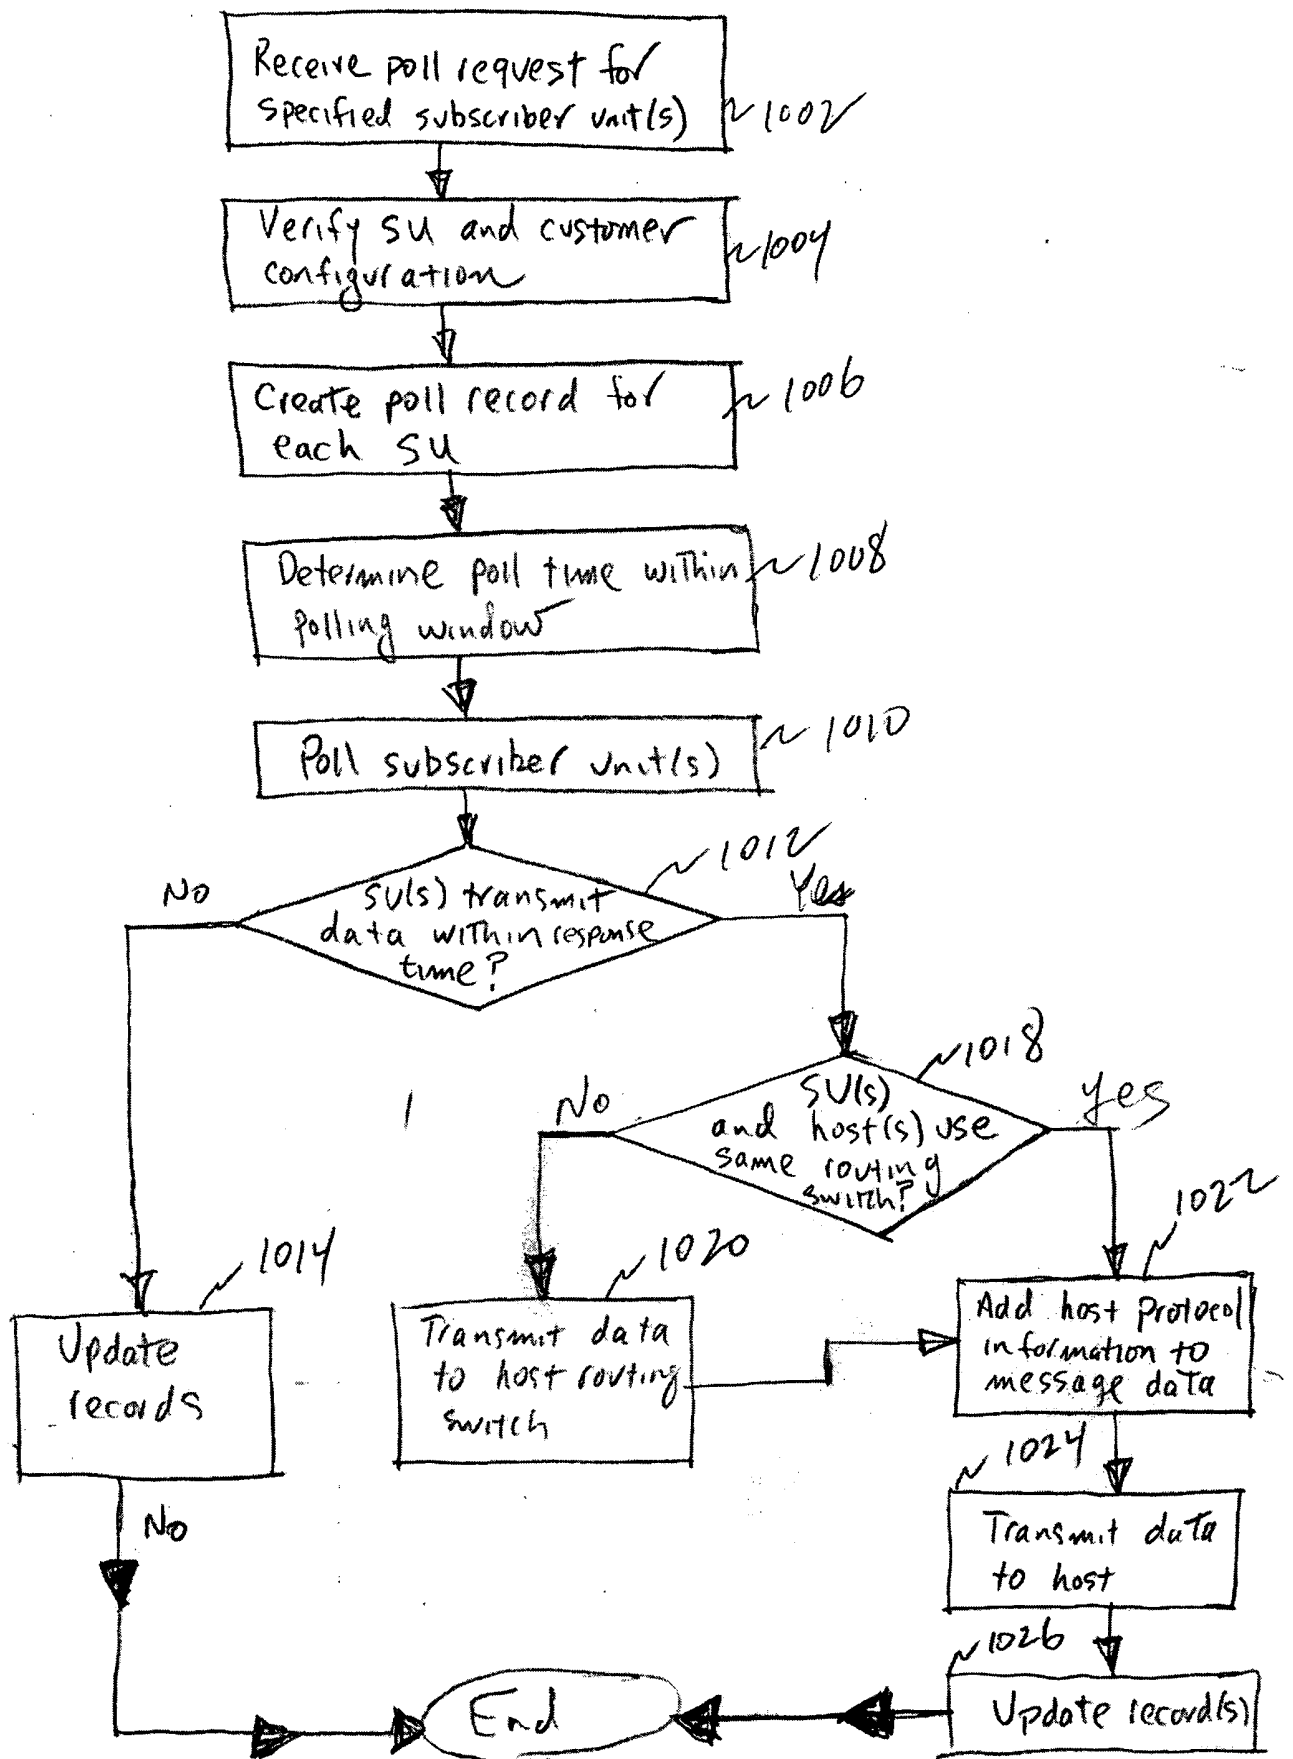 Receive poll request for
specified subscriber unit(s)
1002
Verify SU and customer
configuration
1004
Create poll record for
each SU
1006
Determine poll time within
polling window
1008
Poll subscriber unit(s)
1010
1012
No
Yes
SU(s) transmit
data within response
time?
1018
No
yes
SU(s)
and host(s) use
same routing
switch?
1014
1020
1022
Update
records
Transmit data
to host routing
switch
Add host protocol
information to
message data
1024
No
Transmit data
to host
1026
End
Update record(s)